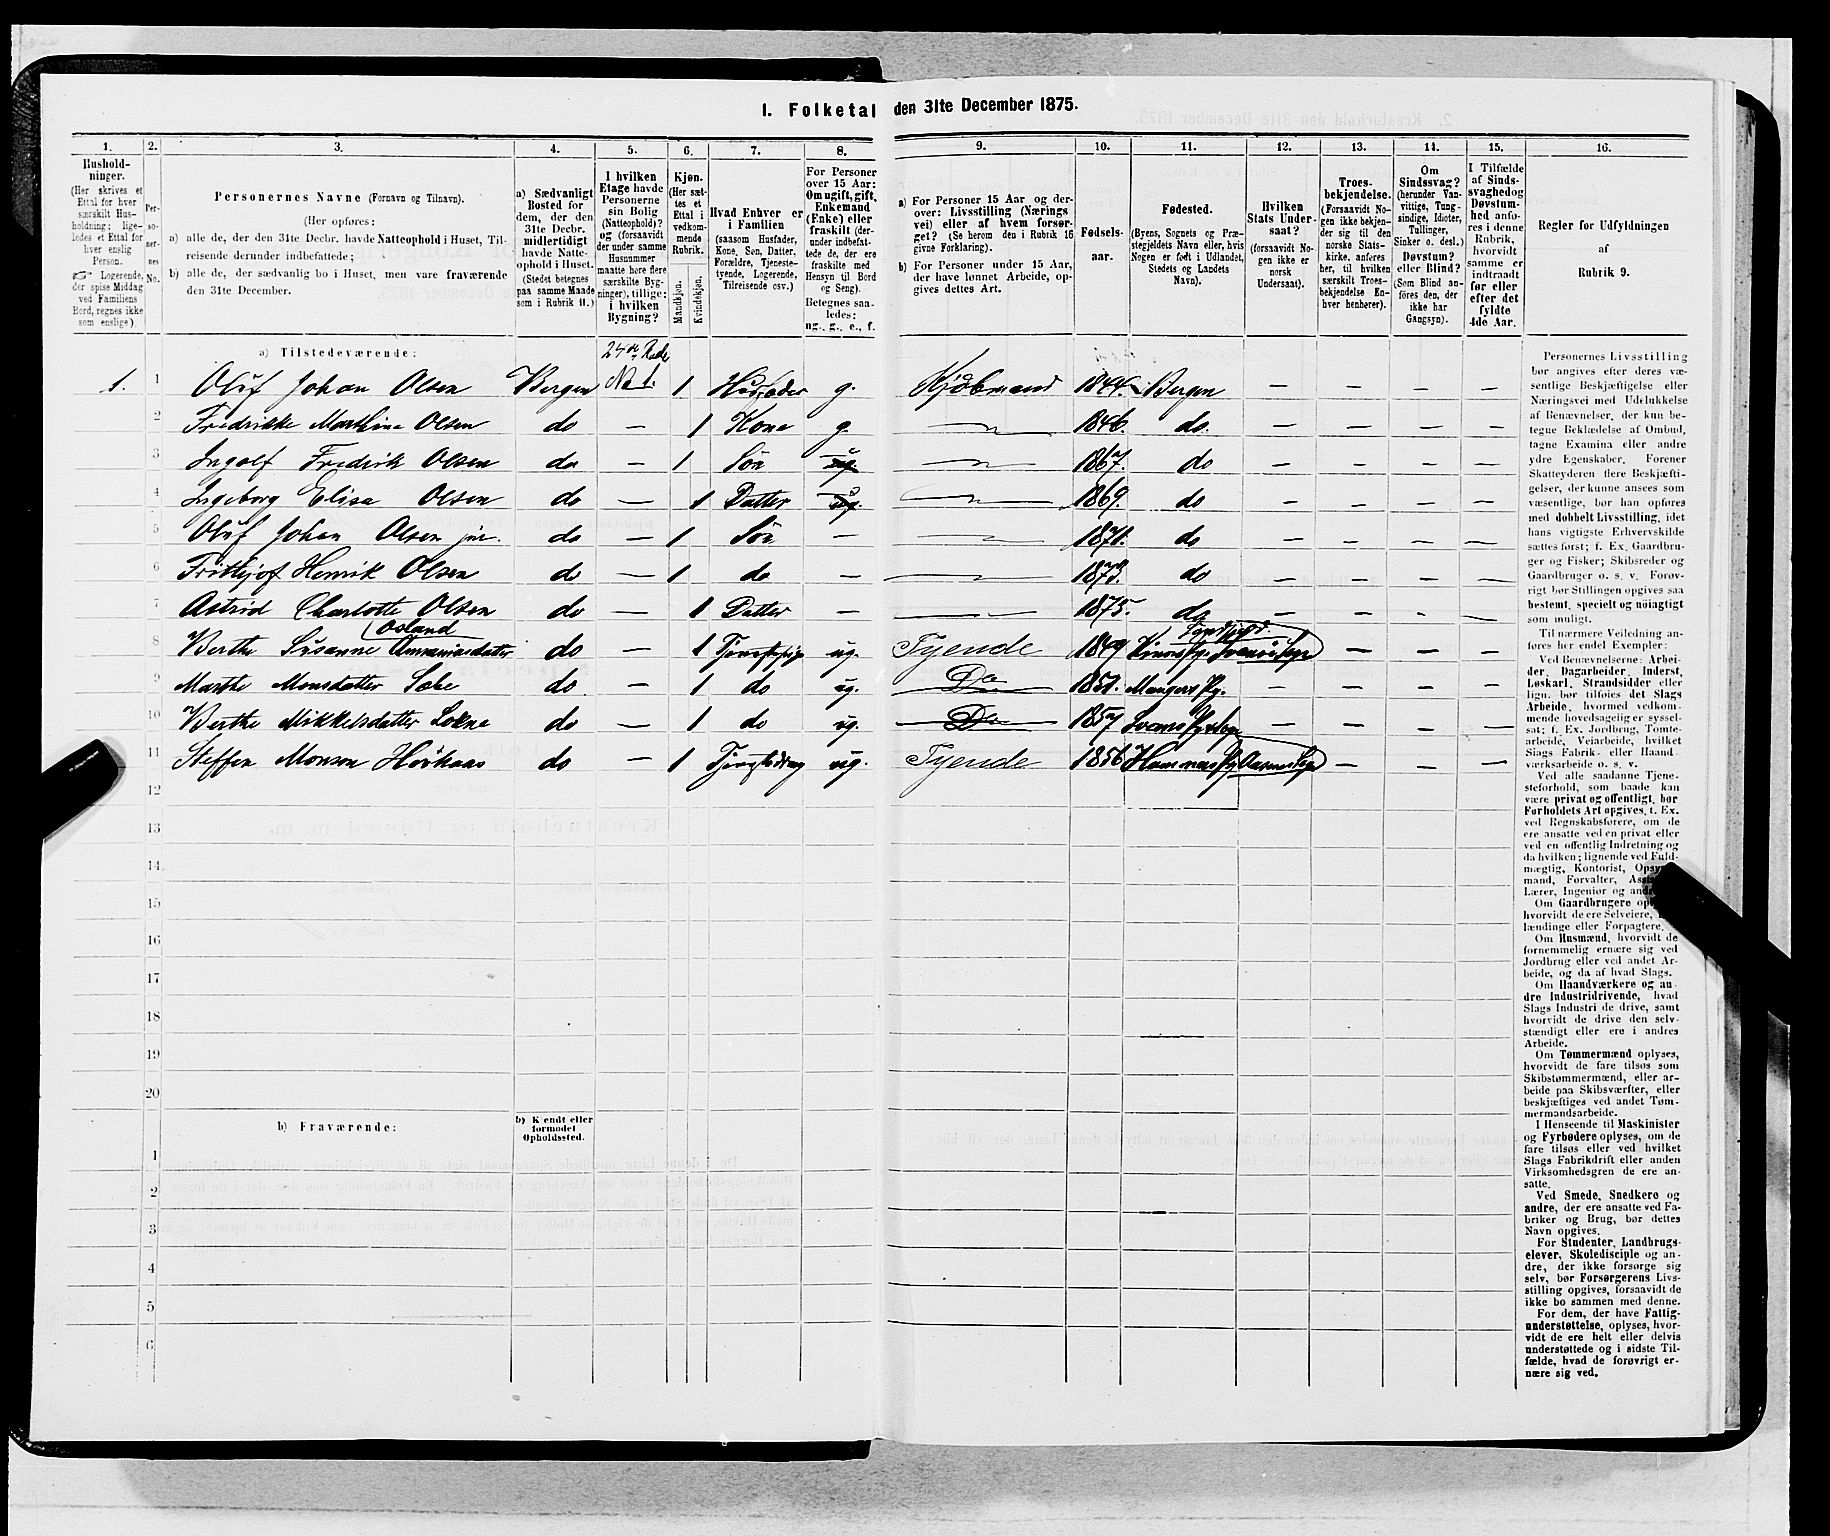 1. Folketal den 31te December 1875.
1.
2.
3.
4.
5.
6.
7.
8.
9.
10.
11.
12.
13.
14.
15.
16.
Husholdninger.
(Her skrives et
Ettal for hver
særskilt Husholdning;
ligeledes et Ettal for
hver enslig
Person.
☞ Logerende,
der spise Middag
ved Familiens
Bord, regnes ikke
som enslige).
Personernes
No.
Personernes Navne (Fornavn og Tilnavn).
(Her opføres:
a) alle de, der den 31te Decbr. havde Natteophold i Huset, Tilreisende derunder indbefattede;
b) alle de, der sædvanlig bo i Huset, men vare fraværende
den 31te December.
a) Sædvanligt
Bosted for
dem, der den
31te Decbr.
midlertidigt
havde Natteophold
i Huset.
(Stedet betegnes
paa samme Maade
som i Rubrik 11.)
I hvilken
Etage havde
Personerne
sin Bolig
(Natteophold)?
og (forsaavidt
der under samme
Husnummer
maatte høre flere
særskilte Bygninger),
tillige:
i hvilken
Bygning?
Kjøn.
(Her sættes
et
Ettal i
vedkommende
Rubrik.
Mandkjøn.
Kvindekjøn.
Hvad Enhver er
i Familien
(saasom Husfader,
Kone, Søn, Datter,
Forældre, Tjenestetyende,
Logerende,
Tilreisende osv.)
For Personer
over 15 Aar:
Om ugift, gift,
Enkemand
(Enke) eller
fraskilt (derunder
indbefattede
de, der ere
fraskilte med
Hensyn til Bord
og Seng).
Betegnes saaledes:
ug., g., e., f.
a) For Personer 15 Aar og derover:
Livsstilling (Næringsvei)
eller af hvem forsørget?
(Se herom den i Rubrik 16
givne Forklaring).
b) For Personer under 15 Aar,
der have lønnet Arbeide, opgives
dettes Art.
Fødselsaar.
Fødested.
(Byens, Sognets og Præstegjeldets
Navn eller, hvis
Nogen er født i Udlandet,
Stedets og Landets
Navn).
Hvilken
Stats Undersaat?
(forsaavidt Nogen
ikke er
norsk
Undersaat).
Troesbekjendelse.
(Forsaavidt Nogen
ikke bekjender
sig til den
norske Statskirke,
anføres
her, til hvilken
særskilt Troesbekjendelse
Enhver
henhører).
Om
Sindssvag?
(herunder Vanvittige,
Tungsindige,
Idioter,
Tullinger,
Sinker o. desl.)
Døvstum?
eller Blind?
(Som Blind anføres
den, der
ikke har
Gangsyn).
I Tilfælde
af Sindssvaghed
og
Døvstumhed
anføres
i denne
Rubrik,
hvorvidt
samme er
indtraadt
før eller
efter det
fyldte
4de Aar.
Regler for Udfyldningen
af
Rubrik 9.
a) Tilstedeværende:
24de Rode
1. 1 Oluf Johan Olsen Bergen No 1. 1 Husfader g. Kjøbmand 1844. Bergen — — — —
2 Fredrikke Marthine Olsen do — 1 Kone g. — 1846. do. — — — —
3 Ingolf Fredrik Olsen do — 1 Søn ug. — 1867. do — — — —
4 Ingeborg Elisa Olsen do — 1 Datter ug. — 1869. do — — — —
5 Oluf Johan Olsen jur. do — 1 Søn — — 1871. do — — — —
6 Frithjof Henrik Olsen do — 1 do — — 1873. do — — — —
7 Astrid Charlotte Olsen do — 1 Datter — — 1875. do — — — —
Osland
8 Berthe Susanne Ananiasdatter do — 1 Tjenestepige ug. Tyende 1849 — — — —
9 Marthe Monsdatter do — 1 do ug. Do 1851. Manger Pg. — — — —
10 Berthe Mikkelsdatter do — 1 do ug. Do 1857 — — — —
11 Steffen Monsen do — 1 Tjenestedreng ug. Tyende 1856 Hammers Pg — — —
12
13
14
15
16
17
18
19
20
b) Fraværende:
b) Kjendt eller
formodet
Opholdssted.
1
2
3
4
5
6
Personernes Livsstilling
bør angives efter deres væsentlige
Beskjæftigelse eller
Næringsvei med Udelukkelse
af Benævnelser, der kun betegne
Beklædelse af Ombud,
tagne Examina eller andre
ydre Egenskaber. Forener
Skatteyderen flere Beskjæftigelser,
der kunne ansees som
væsentlige, bør han opføres
med dobbelt Livsstilling, idet
hans vigtigste Erhvervskilde
sættes først; f. Ex. Gaardbruger
og Fisker; Skibsreder og
Gaardbruger o. s. v. Forøvrigt
bør Stillingen opgives saa
bestemt, specielt og nöiagtigt
som muligt.
Til nærmere Veiledning anføres
her endel Exempler:
Ved Benævnelserne: Arbeider,
Dagarbeider, Inderst,
Løskarl, Strandsidder eller
lign. bør tilføies det Slags
Arbeide, hvormed vedkommende
hovedsagelig er sysselsat;
f. Ex. Jordbrug, Tomtearbeide,
Veiarbeide, hvilket
Slags Fabrik- eller Haandværksarbeide
o. s. v.
Ved alle saadanne Tjenesteforhold,
som baade kan
være privat og offentligt, bør
Forholdets Art opgives, t. Ex.
ved Regnskabsførere, om de
ere ansatte ved en privat eller
ved en offentlig Indretning og
da hvilken; lignende ved Fuldmægtig,
Kontorist,
mand, Forvalter,
Lærer, Ingeniør og
Om Gaardbrugere
hvorvidt de ere Selveiere,
lændinge eller Forpagtere.
Om Husmænd, hvorvidt de
fornemmelig ernære sig ved
Jordbrug eller ved andet Arbeide,
og da af hvad Slags.
Om Haandværkere og andre
Industridrivende, hvad
Slags Industri de drive, samt
hvorvidt de drive den selvstændigt
eller ere i andres
Arbeide.
Om Tømmermænd oplyses,
hvorvidt de fare tilsøs som
Skibstømmermænd, eller arbeide
paa Skibsværfter, eller
beskjæftiges ved andet Tømmermandsarbeide.
I Henseende til Maskinister
og Fyrbødere oplyses, om de
fare tilsøs eller ved hvilket
Slags Fabrikdrift eller anden
Virksomhedsgren de ere ansatte.
Ved Smede, Snedkere og
andre, der ere ansatte ved Fabriker
og Brug, bør dettes
Navn opgives.
For Studenter, Landbrugselever,
Skoledisciple og andre,
der ikke forsørge sig
selv, bør Forsørgerens Livsstilling
opgives, forsaavidt de
ikke bo sammen med denne.
For dem, der have Fattigunderstøttelse,
oplyses, hvorvidt
de ere helt eller delvis
understøttede og i sidste Tilfælde,
hvad de forøvrigt ernære
sig ved.